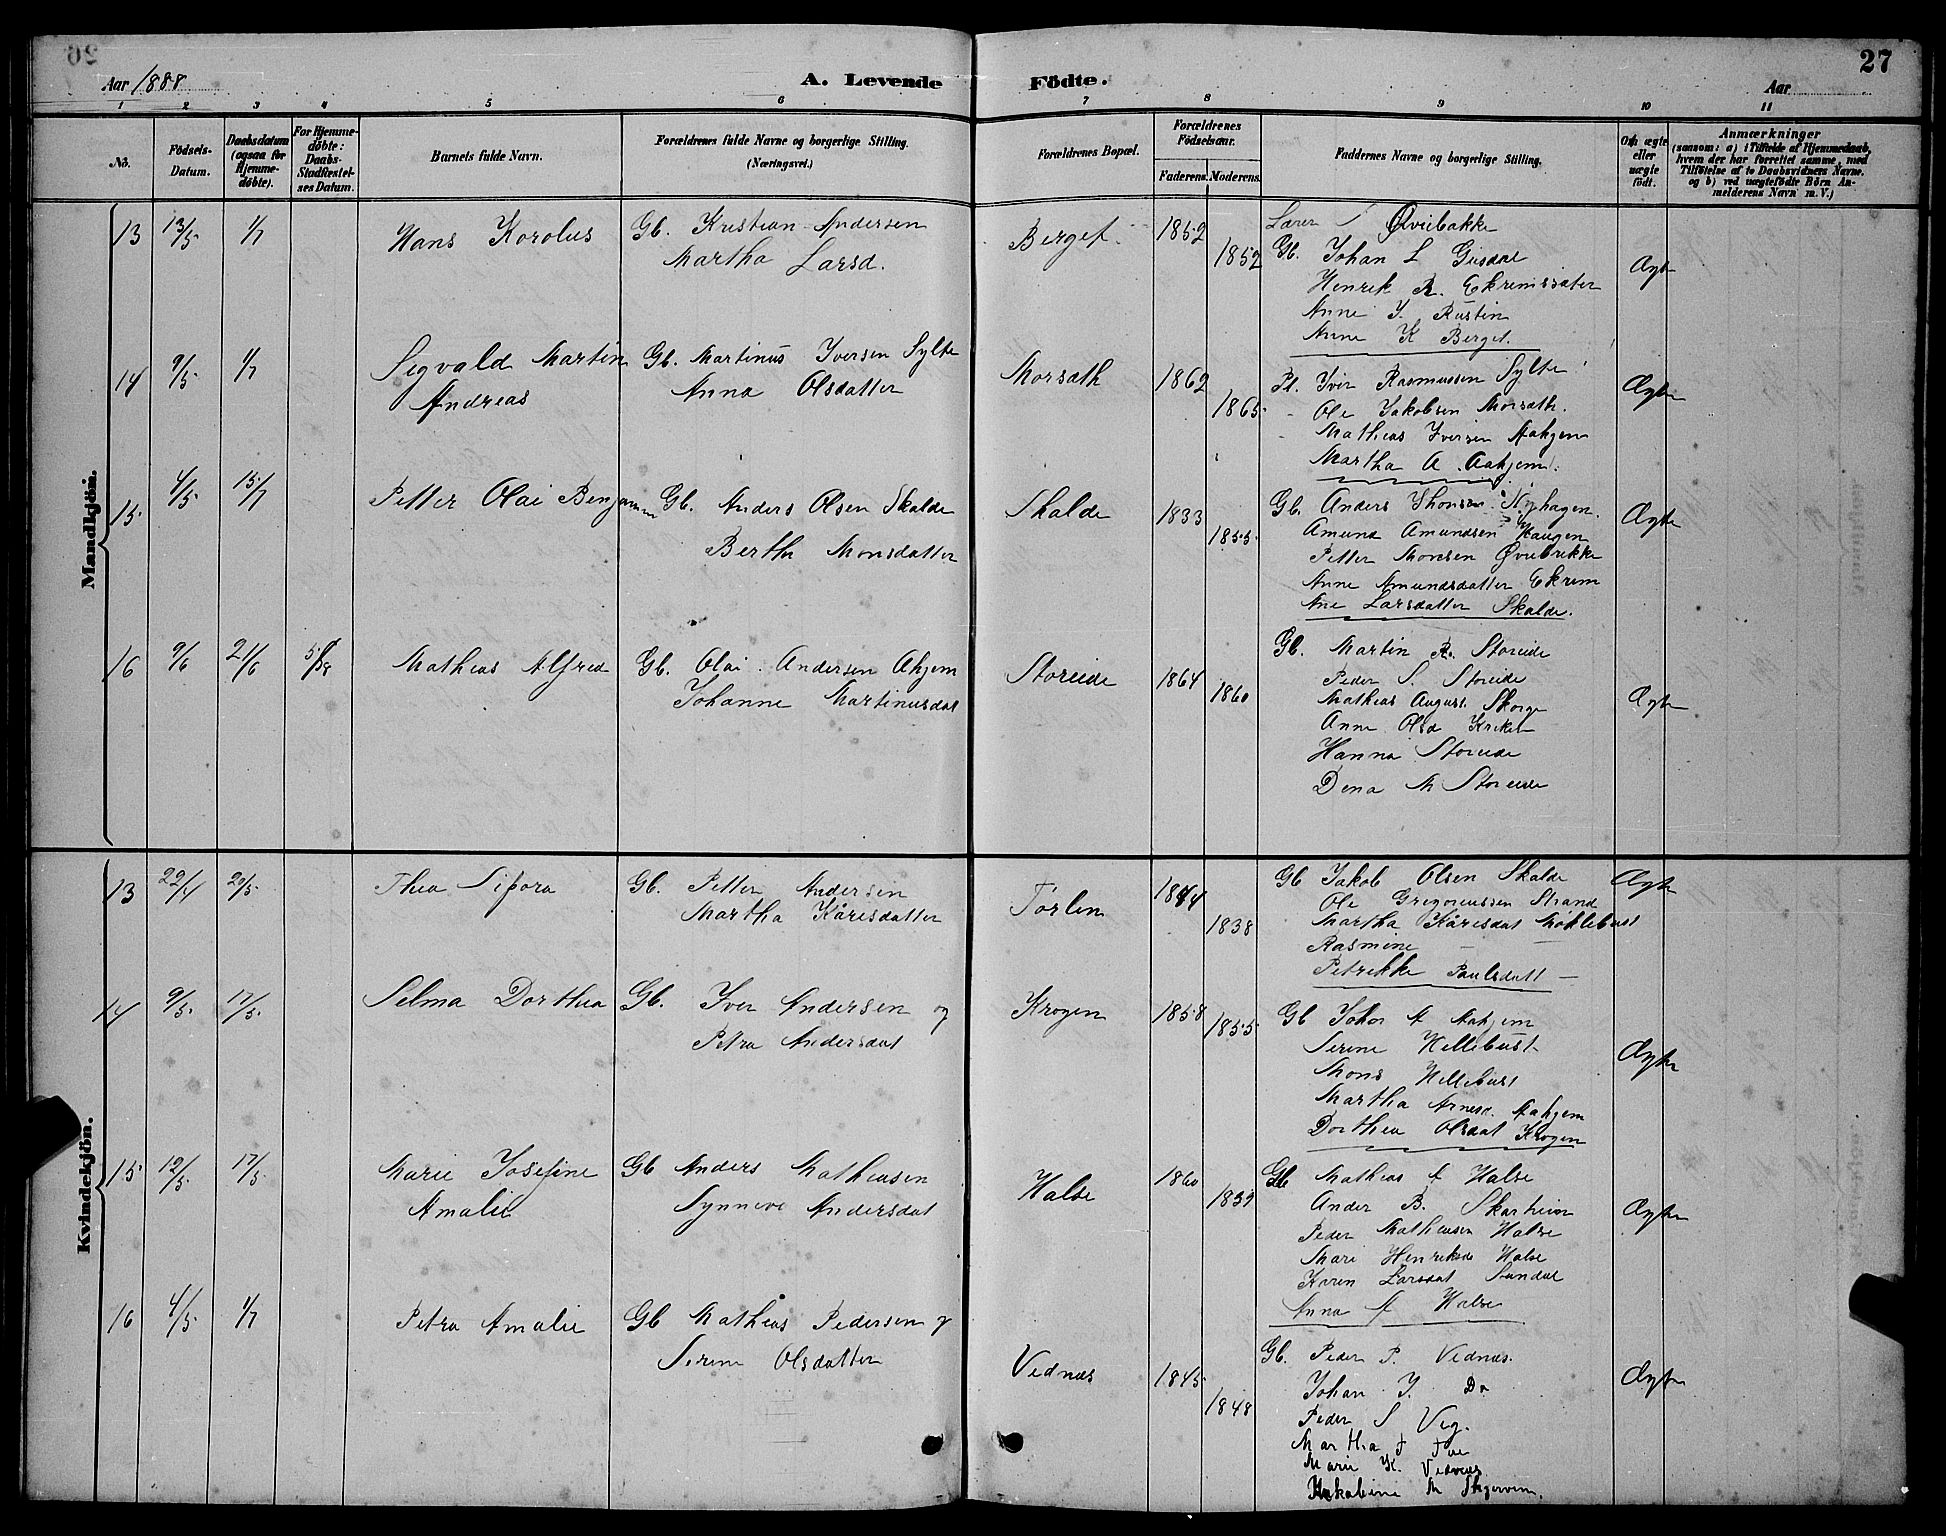 27
Aar 1888
A. Levende Födte.
Aar
1 2 3 4 5 6 7 8 9 10 11
No.
Födsels-Datum.
Daabsdatum (ogsaa for Hjemme-döbte).
For Hjemme-döbte: Daabs-Stadfæstel-ses Datum.
Barnets fulde Navn.
Forældrenes fulde Navne og borgerlige Stilling.
(Næringsvei.)
Forældrenes Bopæl.
Forældrenes Födselsaar.
Faderens. Moderens.
Faddernes Navne og borgerlige Stilling.
Om ægte eller uægte födt.
Anmærkninger
(saasom: a) i Tilfælde af Hjemmedaab,
hvem der har forrettet samme, med
Tilföielse af to Daabsvidners Navne.
og b) ved uægtefödte Börn An-
melderens Navn m. V.)
Mandkjön.
13 13/5 1/7 Hans Korolus Gb. Kristian Andersen
Martha Larsd.
Berget 1852 1852
Lærer Øvrebakke
Gb. Johan L Gusdal
Henrik R. Ekremssæter
Anne J. Rustin
Anne K Berget.
Ægte
14 9/5 1/7 Segvald Martin
Andreas
Gb. Martinus Iversen Sylte
Anna Olsdatter
Morsath 1862 1865
Pl. Iver Rasmussen Sylte
- Ole Jakobsen Morsath.
Mathias Iversen Aahjem
Martha A. Aahjem.
Ægte
15 4/5 15/7 Petter Olai Benjamin
Gb. Anders Olsen Skalde
Berthe Monsdatter
Skalde 1833 1855
Gb. Anders Nyhagen.
Amund Amundsen Haugen
Petter Monsen Øvrebakke
Anne Amundsdatter Ekrem
Ane Larsdatter Skalde.
Ægte
16 9/6 21/6 Mathias Alfred
Gb. Olai Andersen Ahjem
Johanne Martinusdat
Storeide 1864 1860
Gb. Martin R. Storeide
Peder S. Storeide
Mathias August Skorge
Anne Olsd Kriken
Hanna Storeide
Dena M Storeide
Ægte
Kvindekjön.
13 22/4 20/5 Thea Sifora
Gb. Petter Andersen
Martha Kåresdatter
Torlen 1844 1838
Gb Jakob Olsen Skalde
Ole Gregoriussen Strand
Martha Kåresdat Møklebust
Rasmine — —
Petrikke Paulsdatt —
Ægte
14 9/5 17/5 Selma Dorthea
Gb. Iver Andersen og
Petra Andersdat
Krogen 1858 1855
Gb Johan A Aahjem
Serine Hellebust
Mons Hellebust
Martha Arnesd. Aahjem
Dorthea Olsdat Krogen
Ægte
15 12/5 17/5 Marie Josefine
Amalie
Gb Anders Mathiasen
Synneve Andersdat
Halse 1860 1859
Gb Mathias A Halse
Ander B. Skarheim
Peder Mathiasen Halse
Mari Henriksd Halse
Karen Larsdat Sundal
Anna A Halse
Ægte
16 4/5 1/7 Petra Amalie
Gb Mathias Pedersen og
Serine Olsdatter
Vednæs 1845 1848
Gb. Peder P. Vednæs.
Johan J. Do
Peder S Vig.
Martha J
Marie K. Vednæs
Jakobine M
Ægte